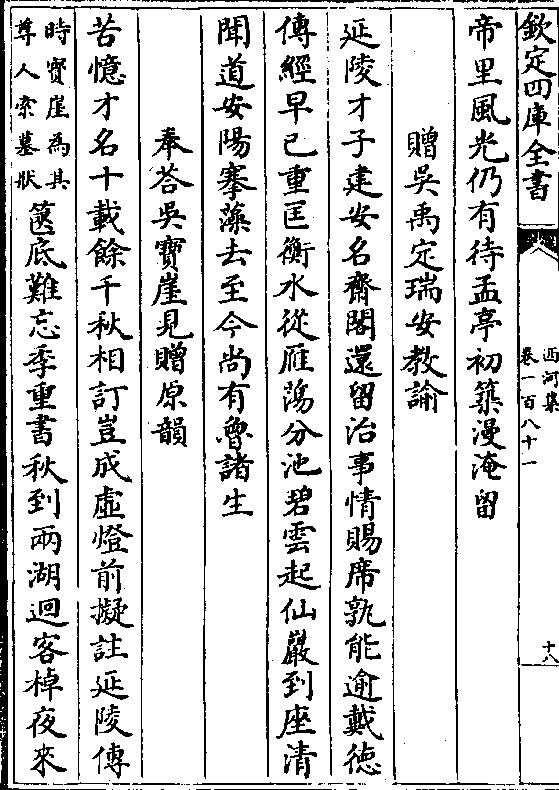 欽定四庫全書
西河集
卷一百八十一
十八
帝里風光仍有待孟亭初築漫淹留
贈吳禹定瑞安教諭
延陵才子建安名齋閣還留治事情賜席孰能逾戴徳
傳經早已重匡衡水從雁蕩分池碧雲起仙巖到座清
聞道安陽搴藻去至今尚有魯諸生
奉荅吳寶崖見贈原韻
苦憶才名十載餘千秋相訂豈成虛燈前擬註延陵傳
時寶崖為其
尊人索墓狀
篋底難忘季重書秋到兩湖迴客棹夜來